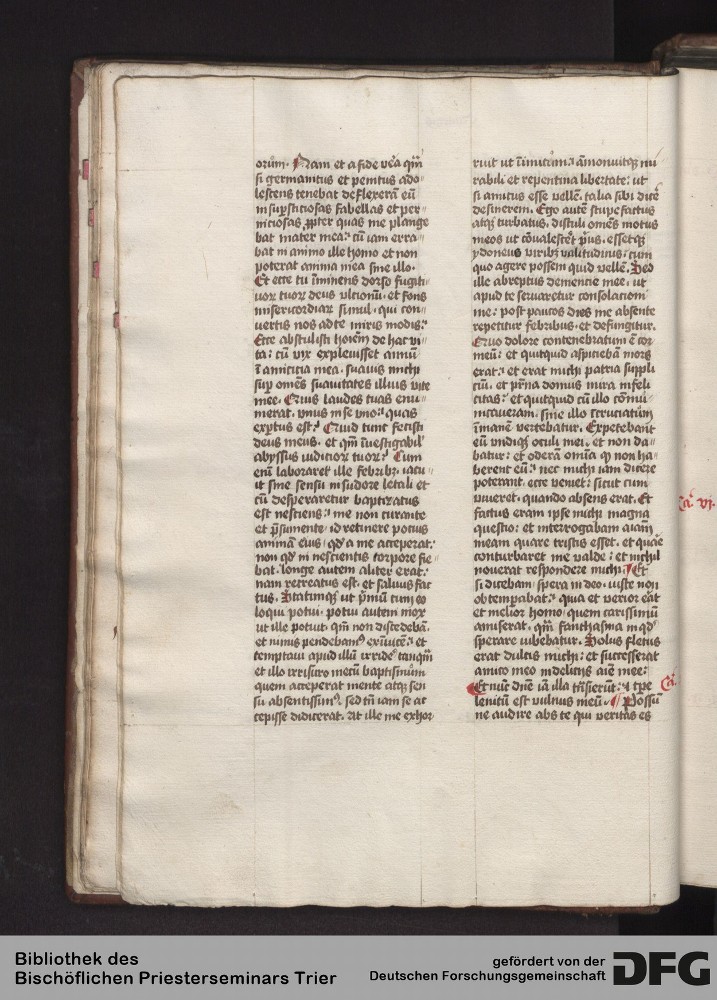 orum. Nam et a fide vera qm̄
si germanitus et penitus ado
lescens tenebat deflexerā eū
in supsticiosas fabellas et per
niciosas ꝓpter quas me plange
bat mater mea: cū iam erra
bat in animo ille homo et non
poterat anima mea sine illo.
Et ecce tu īminens dorso fugiti
uoꝝ tuoꝝ deus vltionū. et fons
misericordiaꝝ simul. qui con
uertis nos ad te miris modis:
Ecce abstulisti hoīem de hac vi
ta: cū vix expleuisset annū
ī amicicia mea. suauis michi
sup omēs suauitates illius vite
mee. Quis laudes tuas enu
merat. vnus in se vno: quas
exptus est: Quid tunc fecisti
deus meus. et qm̄ īuestigabil'
abyssus iudicioꝝ tuoꝝ: Cum
enī laboraret ille febribꝫ. iacu
it sine sensu in sudore letali et
cū desperaretur baptizatus
est nesciens: me non curante
et p̄sumente. id retinere pocius
animā eius. qd̓ a me acceperat.
non qd̓ in nescientis corpore fie
bat. longe autem aliter erat.
nam recreatus est. et saluus fac
tus. Statimqꝫ ut p̄mū cum eo
loqui potui. potui autem mox
ut ille potuit. qm̄ non discedebā.
et nimis pendebamꝰ exīuicē: et
temptaui apud illū irride tanqm̄
et illo irrisuro mecū baptismum
quem acceperat mente atqꝫ sen
su absentissimꝰ. sed tn̄ iam se ac
cepisse didicerat. At ille me exhor
ruit ut inimicum: āmonuitqꝫ mi
rabili et repentina libertate: ut
si amicus esse vellē. talia sibi dicē
desinerem. Ego autē stupefactus
atqꝫ turbatus. distuli omēs motus
meos ut cōualescēt p̓us. essetqꝫ
ydoneus viribꝫ valitudinis: cum
quo agere possem quid vellē. Sed
ille abreptus demencie mee. ut
apud te seruaretur consolacioni
mee: post paucos dies me absente
repetitur febribus. et defungitur.
Quo dolore contenebratum ē cor
meū: et quitquid aspiciebam mors
erat: et erat michi patria suppli
ciū. et p̄rna domus mira infeli
citas: et quitquid cū illo cōmu
nicaueram. sine illo ī cruciatum
īmanē vertebatur. Expetebant
eū vndiqꝫ oculi mei. et non da
batur: et oderā omīa qꝫ non ha
berent eū: nec michi iam dicere
poterant. ecce veniet: sicut cum
viueret. quando absens erat. Et
factus eram ipse michi magna
questio: et interrogabam aīam
meam quare tristis esset. et quare
conturbaret me valde: et nichil
nouerat respondere michi. Et
si dicebam. spera in deo. iuste non
obtemperabat: quia et verior erat
et melior homo quem carissimū
amiserat. qm̄ fanthasma in qd̓
sperare iubebatur. Solus fletus
erat dulcis michi: et successerat
amico meo in delicijs aīe mee:
Et nūc dn̄e iā illa trāsierūt: ⁊ tpe
lenitū est vulnus meū. Possū
ne audire abs te qui veritas es
Ca. vi.
Ca.
Bibliothek des
Bischöflichen Priesterseminars Trier
gefördert von der
Deutschen Forschungsgemeinschaft
DFG